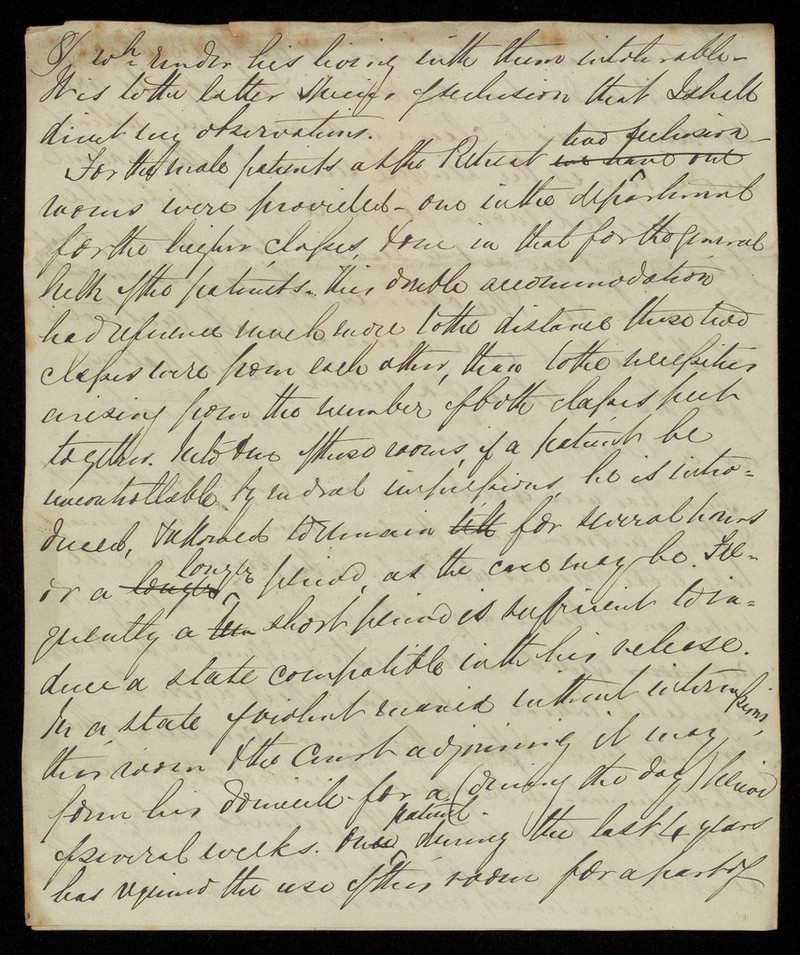 8/ wh render his living with them intolerable -
It is to the latter species of seclusion that I shall
direct my observations.
For the male patients at the Retreat we have one two seclusion -
rooms were provided - one in the department
for the higher classes, & one in that for the general
bulk of the patients. This double accommodation
had reference much more to the distance these two
classes were from each other, than to the necessities
arising from the number of both classes put
together. Into one of these rooms, if a patient be
uncontrollable by moral impressions, he is intro=
duced, & allowed to remain till for several hours
or a longer longer period, as the case may be. Fre-
quently a short period is sufficient to in=
duce a state compatible with his release.
In a state of violent mania without intermissions,
this room & the Court adjoining it may
form his domicile for a (during the day) period
of several weeks. One patient during the last 4 years
has required the use of this room for a part of